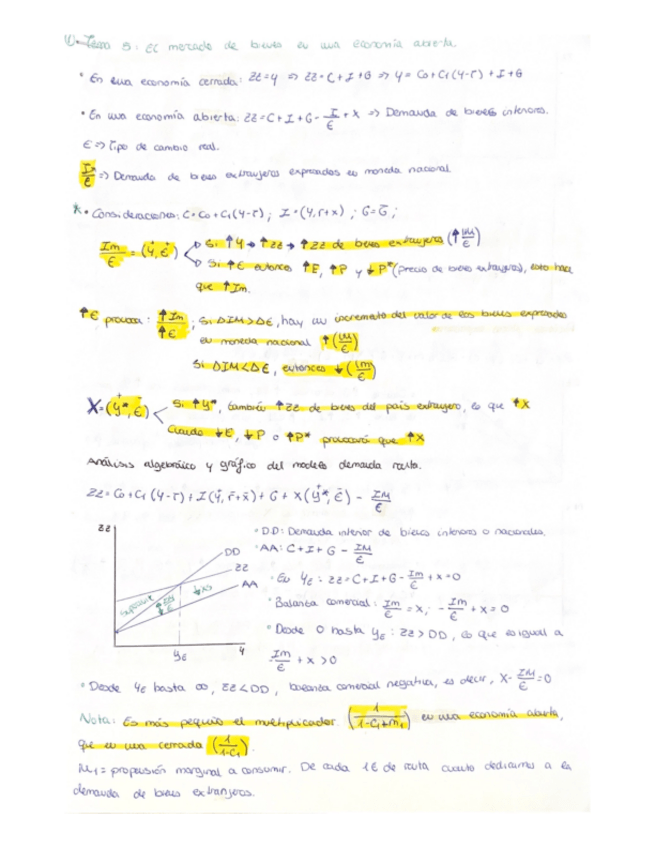 Tema 5: El mercado de bienes en una economía abierta.
• En una economía cerrada: ZZ=Y => ZZ=C+I+G => Y= Co+C1(Y-T)+I+G
• En una economía abierta: ZZ=C+I+G- I/€ +X => Demanda de bienes interiores.
€ => Tipo de cambio real.
I/€ => Demanda de bienes extranjeros expresados en moneda nacional
* • Consideraciones: C=Co+C1(Y-T); I=(Y,r+x); G=G̅;
Im/€ = (Y⁺, €⁺) Si ↑Y → ↑ZZ → ↑ZZ de bienes extranjeros (↑IM/€)
Si ↑€ entonces ↑E, ↑P y ↓P*(precio de bienes extranjeros), esto hace
que ↑Im.
↑€ provoca: ↑Im/↑€; Si ΔIM>ΔE, hay un incremento del valor de los bienes expresados
en moneda nacional ↑(IM/€)
Si ΔIM<ΔE, entonces ↓(Im/€)
X=(Y*⁺, €⁻) Si ↑Y*, también ↑ZZ de bienes del país extranjero, lo que ↑X
Cuando ↓E, ↓P o ↑P* provocará que ↑X
Análisis algebraico y gráfico del modelo demanda renta.
ZZ=Co+C1(Y-T)+I(Y⁺, r̄+x̄)+G+X(Y*⁺,€⁻) - IM/€
ZZ
DD
ZZ
AA
superávit
↑IM/€
↓XN
YE
Y
• DD: Demanda interior de bienes interiores o nacionales.
• AA: C+I+G - IM/€
• En YE: ZZ=C+I+G- Im/€ +X=0
• Balanza comercial: Im/€ =X; - Im/€ +X=0
• Desde 0 hasta YE: ZZ>DD, lo que es igual a
- Im/€ + X >0
• Desde YE hasta ∞, ZZ<DD, balanza comercial negativa, es decir, X- IM/€ =0
Nota: Es más pequeño el multiplicador (1/1-C1+m1) en una economía abierta,
que en una cerrada (1/1-C1).
M1= propensión marginal a consumir. De cada 1€ de renta cuanto dedicamos a la
demanda de bienes extranjeros.